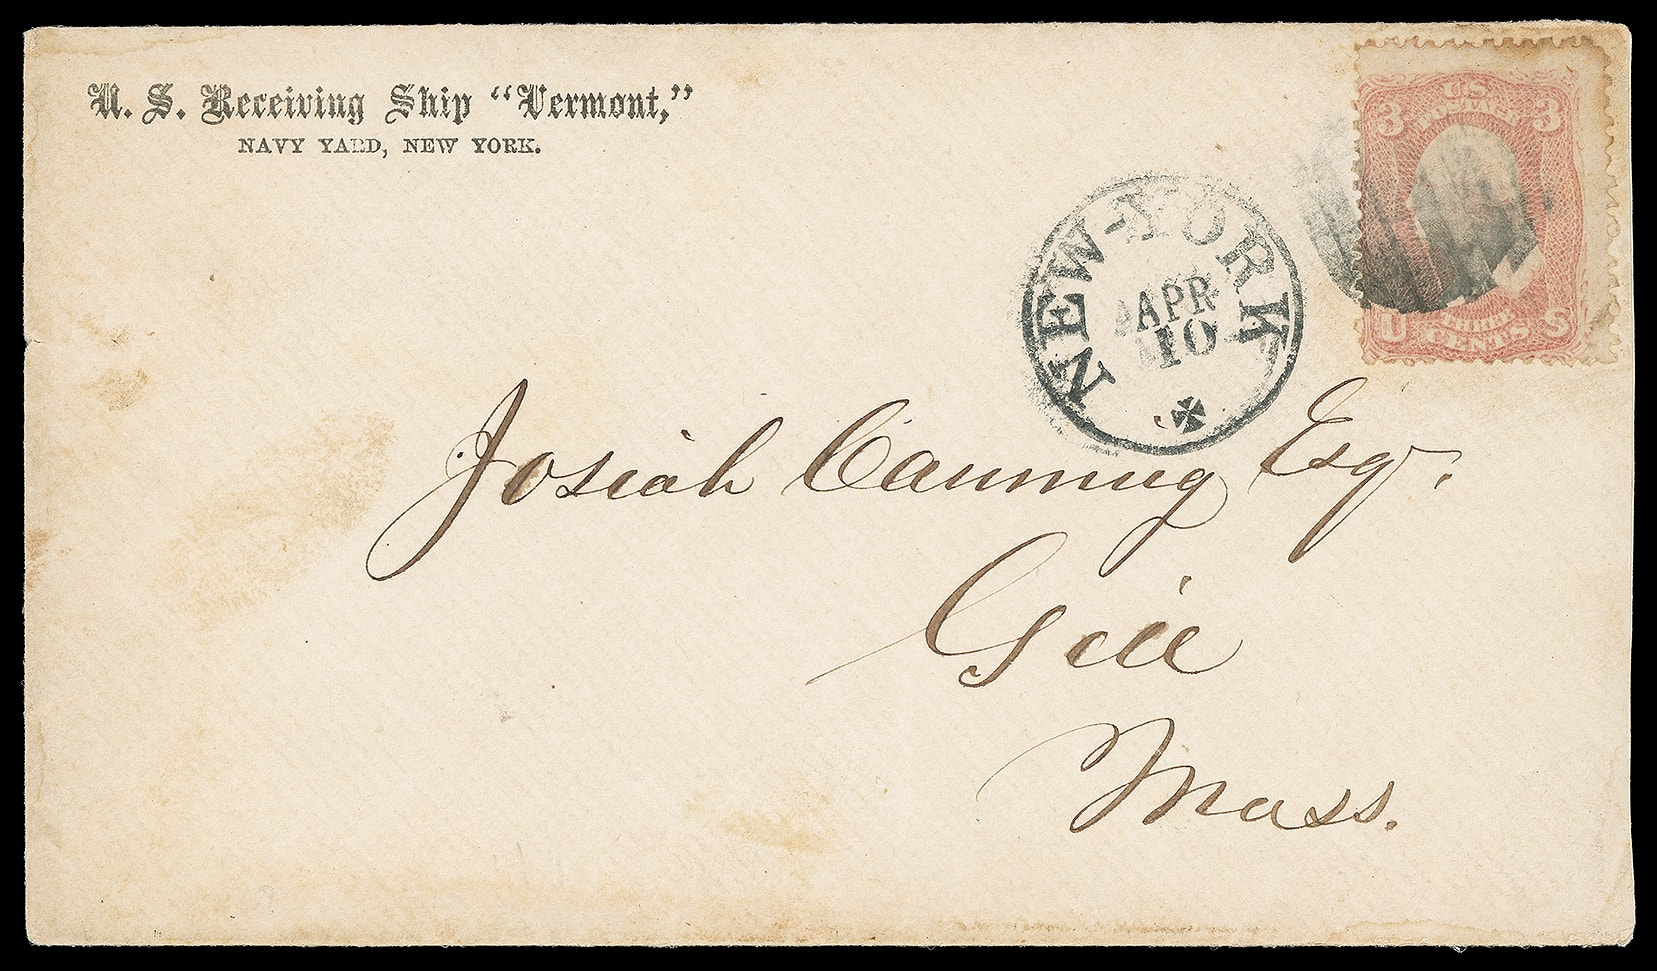 U. S. Receiving Ship “Vermont,”
NAVY YARD, NEW YORK.
3 U.S. 3
POSTAGE
NEW-YORK
APR
10
U THREE S
CENTS
Josiah Canning Esq.
Gill
Mass.